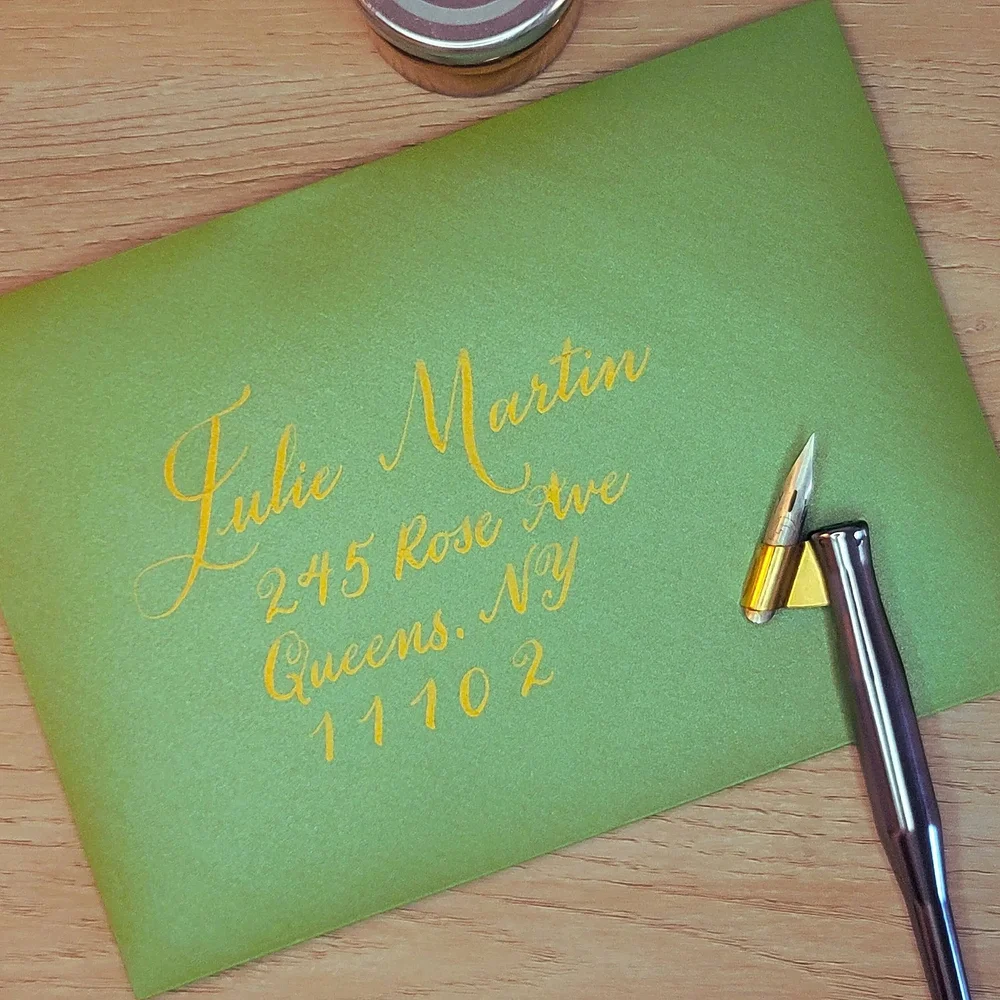 Julie Martin
245 Rose Ave
Queens. NY
11102